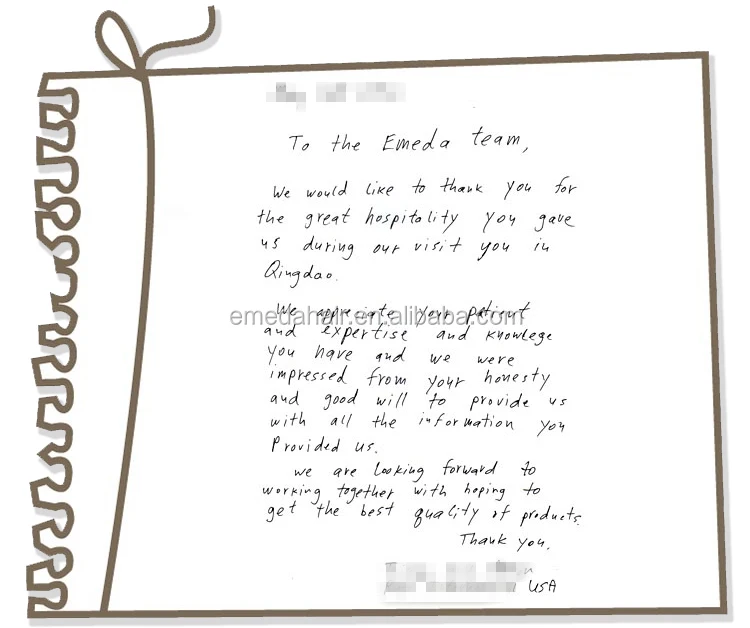 To the Emeda team,
We would like to thank you for
the great hospitality you gave
us during our visit you in
Qingdao.
We appreciate your patient
emedahair.en.alibaba.com
and expertise and knowlege
you have and we were
impressed from your honesty
and good will to provide us
with all the information you
Provided us.
we are looking forward to
working together with hoping to
get the best quality of products.
Thank you.
USA